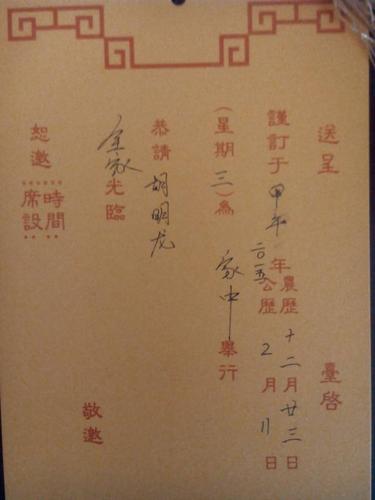 送呈 臺啓
謹訂于甲午年農歷十二月廿三日
二〇一五 公歷 2月11日
(星期三)為 家中 舉行
恭請 胡明龙
全家光臨
時間
恕邀 席設
敬邀